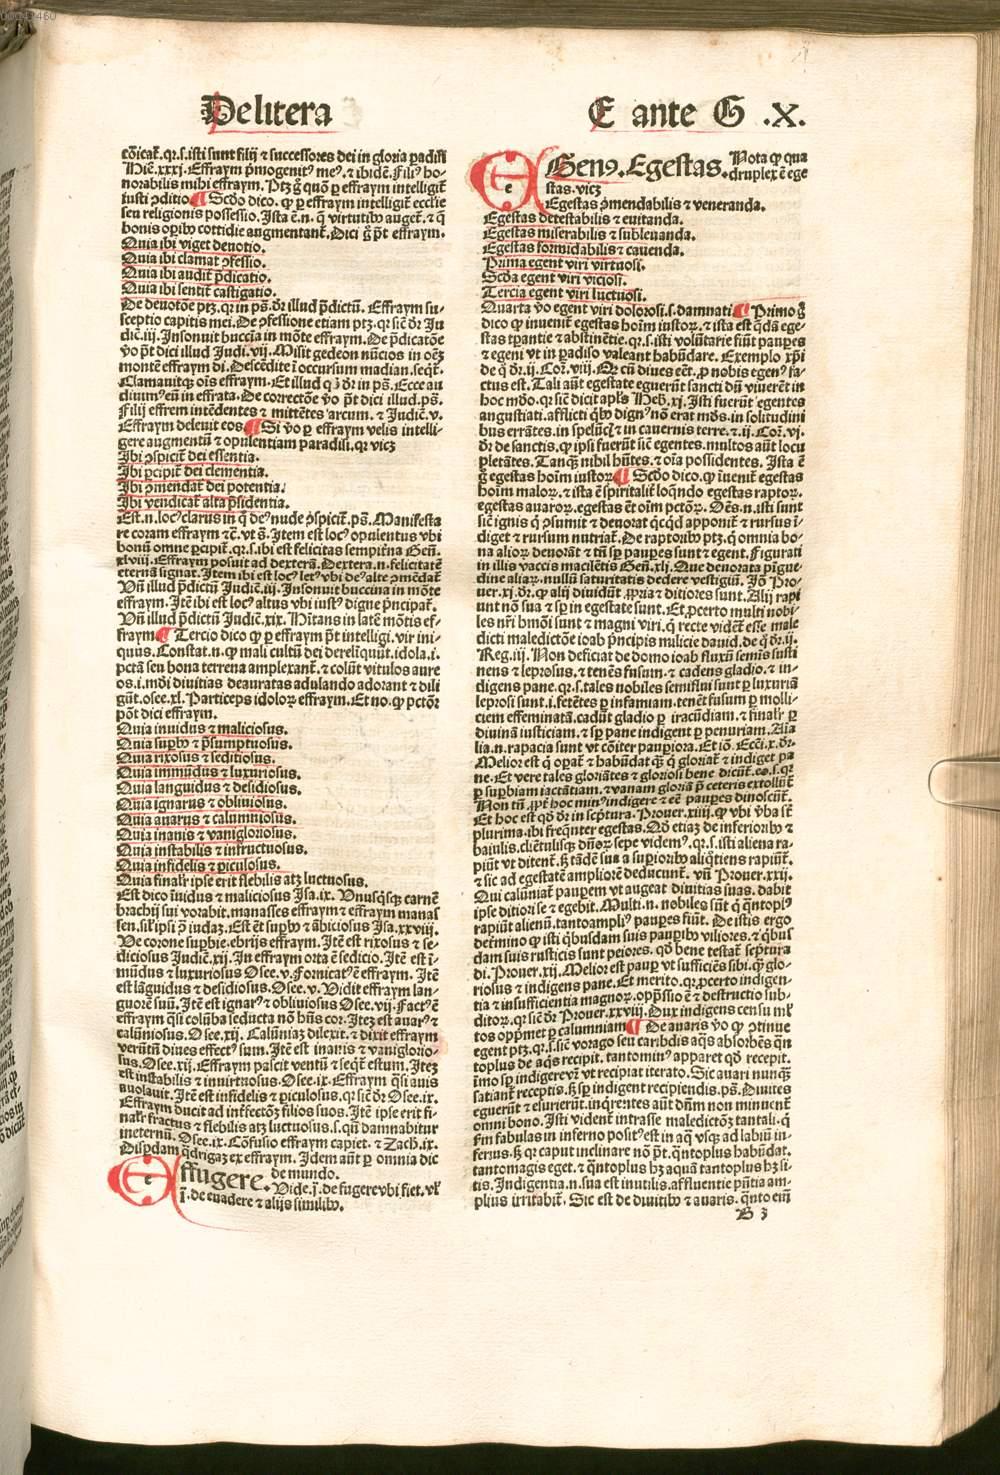 00043460
De litera
E ante G .X.
cōicat̄.qr.s.isti sunt filij ⁊ successores dei in gloria ꝑadisi
Hiē.xxxj.Effraym p̄mogenitꝰ meꝰ.⁊ ibidē.Filiꝰ ho-
norabilis mihi effraym.Ptꝫ g̊ quō ꝑ effraym intelligit̄
iusti ꝯditio¶ Scd̄o dico.ꝙ ꝑ effraym intelligit̄ ecclīe
seu religionis possessio.Ista ē.n.q̄ virtutibꝰ auget̄.⁊ q̄
bonis oꝑibꝰ cottidie augmentant̄.Dici g̊ p̄t effraym.
Quia ibi viget deuotio.
Quia ibi clamat ꝯfessio.
Quia ibi audit̄ p̄dicatio.
Quia ibi sentit̄ castigatio.
De deuotōe ptꝫ.qr in ps̄.dr̄ illud p̄dictū.Effraym su-
sceptio capitis mei.De ꝯfessione etiam ptꝫ.qr sic̄ dr̄ Iu
dic̄.iij.Insonuit buccīa in mōte effraym.De p̄dicatōe
v̊o p̄t dici illud Iudi.vij.Misit gedeon nūcios in oēꝫ
montē effraym di.Descēdite ī occursum madian.seqt̄.
Clamauitqꝫ oīs effraym.Et illud qđ dr̄ in ps̄.Ecce au
diuimꝰ eū in effrata.De correctōe v̊o p̄t dici illud.ps̄.
Filij effrem intēdentes ⁊ mittētes arcum.⁊ Iudic̄.v.
Effraym deleuit eos¶ Si v̊o ꝑ effraym velis intelli-
gere augmentū ⁊ opulentiam paradisi.qr vicꝫ
Ibi ꝯspicit̄ dei essentia.
Ibi ꝑcipit̄ dei clementia.
Ibi ꝯmendat̄ dei potentia.
Ibi vendicat̄ alta p̄sidentia.
Est.n.locꝰ clarus in q̊ deꝰ nude ꝯspicit̄.ps̄.Manifesta
re coram effraym ⁊c̄.vt s̄.Item est locꝰ opulentus vbi
bonū omne ꝑcipit̄.qr.s.ibi est felicitas sempit̄na Gen̄.
xlviij.Effraym posuit ad dexterā.Dextera.n.felicitatē
eternā signat.Item ibi est locꝰ letꝰ vbi deꝰ alte ꝯmēdat̄
Vn̄ illud p̄dictū Iudic̄.iij.Insonuit buccina in mōte
effraym.Itē ibi est locꝰ altus vbi iustꝰ digne p̄ncipat̄.
Vn̄ illud p̄dictū Iudic̄.xix.Hītans in latē mōtis ef-
fraym¶ Tercio dico ꝙ ꝑ effraym p̄t intelligi.vir ini-
quus.Constat.n.ꝙ mali cultū dei derelīquūt.idola.i.
pctā seu bona terrena amplexant̄.⁊ colūt vitulos aure
os.i.mdi diuitias deauratas adulando adorant ⁊ dili
gūt.osee.xl.Particeps idoloꝝ effraym.Et no.ꝙ pctōr
pōt dici effraym.
Quia inuidus ⁊ maliciosus.
Quia suꝑbꝰ ⁊ p̄sumptuosus.
Quia rixosus ⁊ seditiosus.
Quia immūdus ⁊ luxuriosus.
Quia languidus ⁊ desidiosus.
Quia ignarus ⁊ obliuiosus.
Quia auarus ⁊ calumniosus.
Quia inanis ⁊ vanigloriosus.
Quia instabilis ⁊ infructuosus.
Quia infidelis ⁊ ꝑiculosus.
Quia finalr̄ ipse erit flebilis atqꝫ luctuosus.
Est dico īuidus ⁊ maliciosus Isa.ix.Vnusq̄sqꝫ carnē
brachij sui vorabit.manasses effraym ⁊ effraym manas
sen.sil̓ ipsi ꝯ̄ iudaꝫ.Est ēt suꝑbꝰ ⁊ ābiciosus Isa.xxviij.
Ve corone suꝑbie.ebrijs effraym.Itē est rixosus ⁊ se-
diciosus Iudic̄.xij.In effraym orta ē sedicio.Itē est ī-
mūdus ⁊ luxuriosus Osee.v.Fornicatꝰ ē effraym.Itē
est lāguidus ⁊ desidiosus.Osee.v.Vidit effraym lan-
guorē suū.Itē est ignarꝰ ⁊ obliuiosus Osee.vij.Factꝰ ē
effraym qsi colūba seducta nō hn̄s cor.Iteꝫ est auarꝰ ⁊
calūniosus.Osee.xij.Calūniaꝫ dilexit.⁊ dixit effraym
verūtn̄ diues effectꝰ sum.Itē est inanis ⁊ vaniglorio-
sus.Osee.xij.Effraym pascit ventū ⁊ seqt̄ estum.Iteꝫ
est instabilis ⁊ inuirtuosus.Osee.ix.Effraym qsi auis
auolauit.Itē est infidelis ⁊ ꝑiculosus.qr sic̄ dr̄ Osee.ix.
Effraym ducit ad intfectōꝫ filios suos.Itē ipse erit fi-
nalr̄ fractus ⁊ flebilis atqꝫ luctuosus.s.qn̄ damnabitur
ineternū.Osee.ix.Cōfusio effraym capiet.⁊ Zach.ix.
Disꝑdam q̄drigaꝫ ex effraym.Idem aūt ꝑ omnia dic
de mundo.
Effugere.Vide.j.de fugere vbi fiet.vl̓
j.de euadere ⁊ alijs similibꝰ.
EGenꝰ.Egestas.Nota ꝙ qua
druplex ē ege
stas.vicꝫ
Egestas ꝯmendabilis ⁊ veneranda.
Egestas detestabilis ⁊ euitanda.
Egestas miserabilis ⁊ subleuanda.
Egestas formidabilis ⁊ cauenda.
Prima egent viri virtuosi.
Scd̄a egent viri viciosi.
Tercia egent viri luctuosi.
Quarta v̊o egent viri dolorosi.s.damnati¶ Primo g̊
dico ꝙ inuenit̄ egestas hoīm iustoꝝ.⁊ ista est q̄dā ege-
stas tꝑantie ⁊ abstinētie.qr.s.isti volūtarie fiūt pauꝑes
⁊ egeni vt in ꝑadiso valeant habūdare.Exemplo xp̄i
de q̊ dr̄.ij.Cor̄.viij.Qꝛ cū diues eēt.ꝓ nobis egenꝰ fa-
ctus est.Tali aūt egestate eguerūt sancti dū viuerēt in
hoc mdo.qr sic̄ dicit apl̓s Heb̄.xj.Isti fuerūt egentes
angustiati.afflicti qbꝰ dignꝰ nō erat mds.in solitudini
bus errātes.in spelūcis ⁊ in cauernis terre.⁊.ij.Cor̄.vj.
dr̄ de sanctis.ꝙ ipsi fuerūt sic̄ egentes.multos aūt locu
pletātes.Tanqꝫ nihil hn̄tes.⁊ oīa possidentes.Ista ē
g̊ egestas hoīm iustoꝝ¶ Scd̄o dico.ꝙ īuenit̄ egestas
hoīm maloꝝ.⁊ ista ē spiritalit̄ loqn̄do egestas raptoꝝ.
egestas auaroꝝ.egestas ēt oīm pctōꝝ.Oēs.n.isti sunt
sic̄ ignis q̇ ꝯsumit ⁊ deuorat qcqd apponit̄ ⁊ rursus ī-
diget ⁊ rursum nutriat̄.De raptoribꝰ ptꝫ.q̇ omnia bo-
na alioꝝ deuorāt ⁊ tn̄ sꝑ pauꝑes sunt ⁊ egent.Figurati
in illis vaccis macilētis Gen̄.xlj.Que deuorata pīgue-
dine aliaꝝ.nullū saturitatis dedere vestigiū.Iō Pro-
uer.xj.dr̄.ꝙ alij diuidūt ꝓpria ⁊ ditiores sunt.Alij rapi
unt nō sua ⁊ sꝑ in egestate sunt.Et ꝓcerto multi nobi-
les nr̄i hmōi sunt ⁊ magni viri.q̇ recte vidēt̄ esse male
dicti maledictōe ioab p̄ncipis milicie dauid.de q̊ dr̄.ij.
Reg.iij.Non deficiat de domo ioab fluxū semīs susti
nens ⁊ leprosus.⁊ tenēs fusum.⁊ cadens gladio.⁊ in-
digens pane.qr.s.tales nobiles semiflui sunt ꝑ luxuriā
leprosi sunt.i.fetētes ꝑ infamiam.tenēt fusum ꝑ molli-
ciem effeminatā.cadūt gladio ꝑ iracūdiam.⁊ finalr̄ ꝑ
diuinā iusticiam.⁊ sꝑ pane indigent ꝑ penuriam.Aīa
lia.n.rapacia sunt vt cōiter pauꝑiora.Et iō.Ecc̄i.x.dr̄.
Melior est q̇ oꝑat̄ ⁊ habūdat qꝫ q̇ gloriat̄ ⁊ indiget pa
ne.Et vere tales gloriātes ⁊ gloriosi bene dicūt̄.eo.s.qꝛ
ꝑ suꝑbiam iactātiam.⁊ vanam gloriā p̄ ceteris extollūt̄
Non tn̄ ꝓpt̄ hoc minꝰ indigere ⁊ eē pauꝑes dinoscūt̄.
Et hoc est qd dr̄ in sc̄ptura.Prouer.xiiij.ꝙ vbi v̄ba st̄
plurima.ibi freqn̄ter egestas.Qđ etiaꝫ de inferioribꝰ ⁊
baiulis.cliētulisqꝫ dn̄oꝝ sepe videmꝰ.qr.s.isti aliena ra-
piūt vt ditent̄.sꝫ tādē sua a suꝑioribꝰ aliqtiens rapiūt̄.
⁊ sic ad egestatē ampliorē deducunt̄.vn̄ Prouer.xxij.
Qui caluniat̄ pauꝑem vt augeat diuitias suas.dabit
ipse ditiori se ⁊ egebit.Multi.n.nobiles sūt q̇ qn̄toplꝰ
rapiūt alienū.tantoampliꝰ pauꝑes fiūt.De istis ergo
detmino ꝙ isti qbusdam suis pauꝑibꝰ viliores.⁊ qbus
dam suis rusticis sunt peiores.qd bene testat̄ sc̄ptura
di.Prouer.xij.Melior est pauꝑ vt sufficiēs sibi.qꝫ glo-
riosus ⁊ indigens pane.Et merito.qr.ꝓcerto indigen-
tia ⁊ insufficientia magnoꝝ.opp̄ssio ē ⁊ destructio sub-
ditoꝝ.qr sic̄ dr̄ Prouer.xxviij.Dux indigens censu ml̓
tos opp̄met ꝑ calumniam¶ De auaris v̊o ꝙ ꝯtinue
egent ptꝫ.qr.s.sic̄ vorago seu caribdis aqs absorbēs qn̄
toplus de aqs recipit.tantominꝰ apparet qd recepit.
īmo sꝑ indigere vr̄ vt recipiat iterato.Sic auari nunqꝫ
satiant̄ receptis.sꝫ sꝑ indigent recipiendis.ps̄.Diuites
eguerūt ⁊ esurierūt.inqrentes aūt dn̄m non minuent̄
omni bono.Isti vident̄ intrasse maledictōꝫ tantali.q̇
ẜm fabulas in inferno positꝰ est in aq vsqꝫ ad labiū in-
ferius.sꝫ qr caput inclinare nō p̄t.qn̄toplus habūdat.
tantomagis eget.⁊ qn̄toplus hꝫ aquā tantoplus hꝫ si-
tis.Indigentia.n.sua est inutilis.affluentie pn̄tia am-
plius irritabit̄.Sic est de diuitibꝰ ⁊ auaris.qn̄to eni̅
B 3